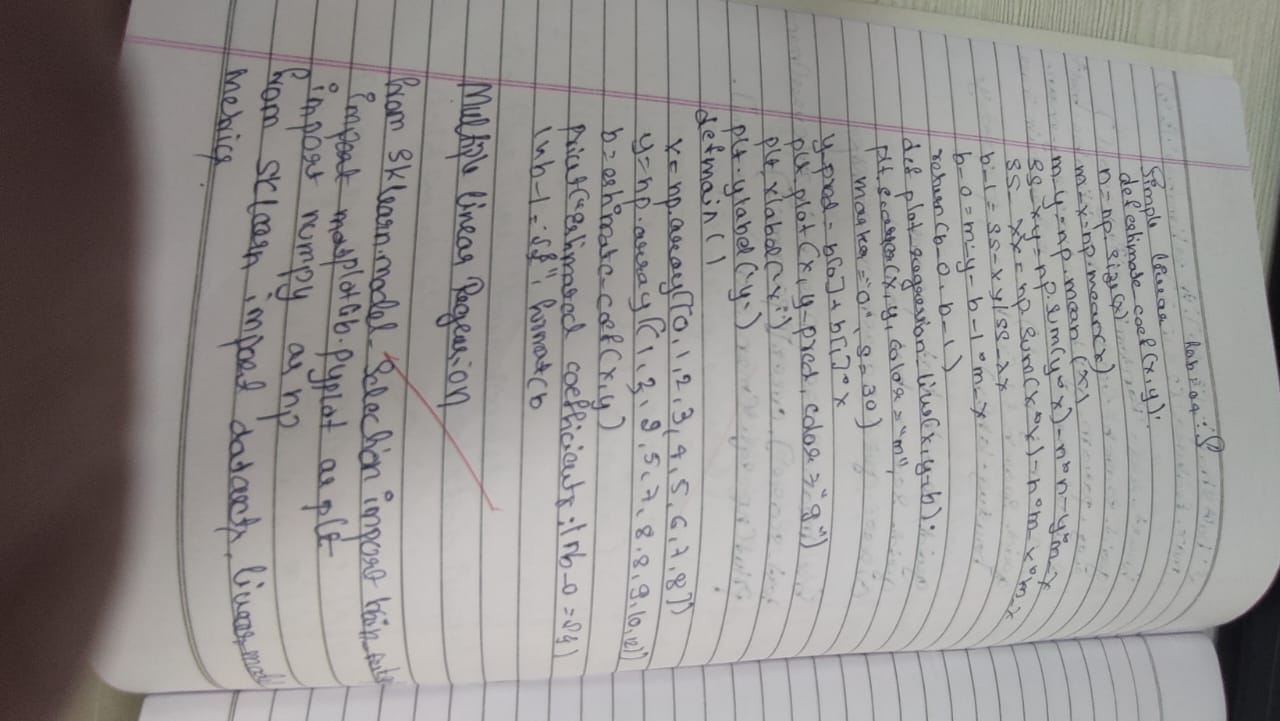 Lab :- 04 :-
Simple linear
def estimate_coef(x,y):
n = np.size(x)
m-x = np.mean(x)
m-y = np.mean(x)
SS-xy = np.sum(y*x) - n*n-y*m-x
SS-xx = np.sum(x*x) - n*m-x*m-x
b-1 = SS-xy/SS-xx
b-0 = m-y-b-1*m-x
return (b-0, b-1)
def plot_regression-line(x,y-b):
plt.scatter(x,y, color="m",
marker="o", s=30)
y-pred = b[0]+b[1]*x
plt.plot(x,y-pred, color="g")
plt.xlabel('x')
plt.ylabel('y')
def main()
x = np.array([0,1,2,3,4,5,6,7,8])
y = np.array([1,3,2,5,7,8,8,9,10,12])
b = estimate-coef(x,y)
Print("Estimated coefficients:\nb-0={}
\nb-1={}".format(b
Multiple linear Regression
from sklearn.model-Selection import train_
import matplotlib.pyplot as plt
import numpy as np
from sklearn import datasets, linear_model
Metrics